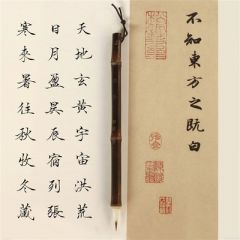 天地玄黃宇宙洪荒
日月盈昃辰宿列張
寒來暑往秋收冬藏
不知東方之既白